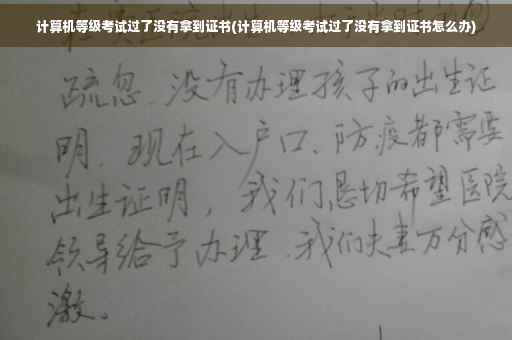 计算机等级考试过了没有拿到证书(计算机等级考试过了没有拿到证书怎么办)
疏忽、没有办理孩子的出生证
明、现在入户口、防疫都需要
出生证明，我们恳切希望医院
领导给予办理、我们夫妻万分感
激。